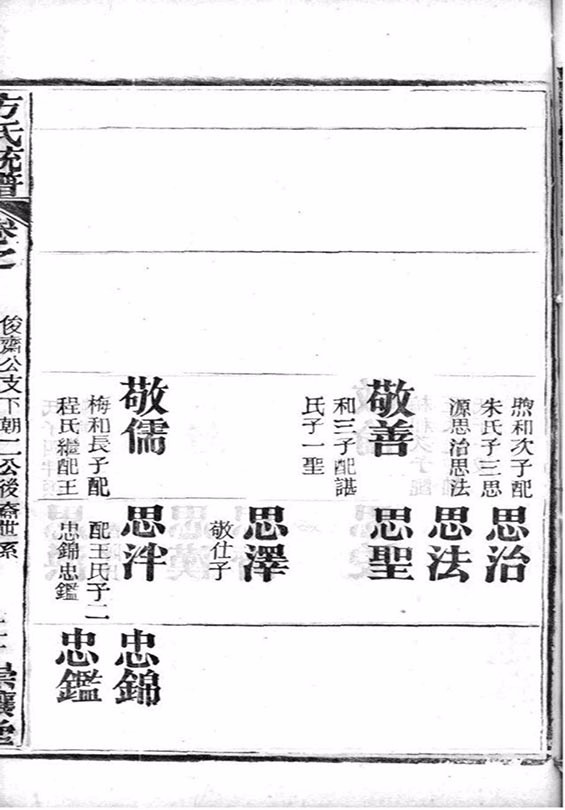 煦和次子配
朱氏子三思
源思治思法
敬善
和三子配諶
氏子一聖
敬儒
梅和長子配
程氏繼配王
思治
思法
思聖
思澤
敬仕子
思泮
配王氏子二
忠錦忠鑑
忠錦
忠鑑
方氏統譜
卷之
俊齋公支下朝二公後裔世系